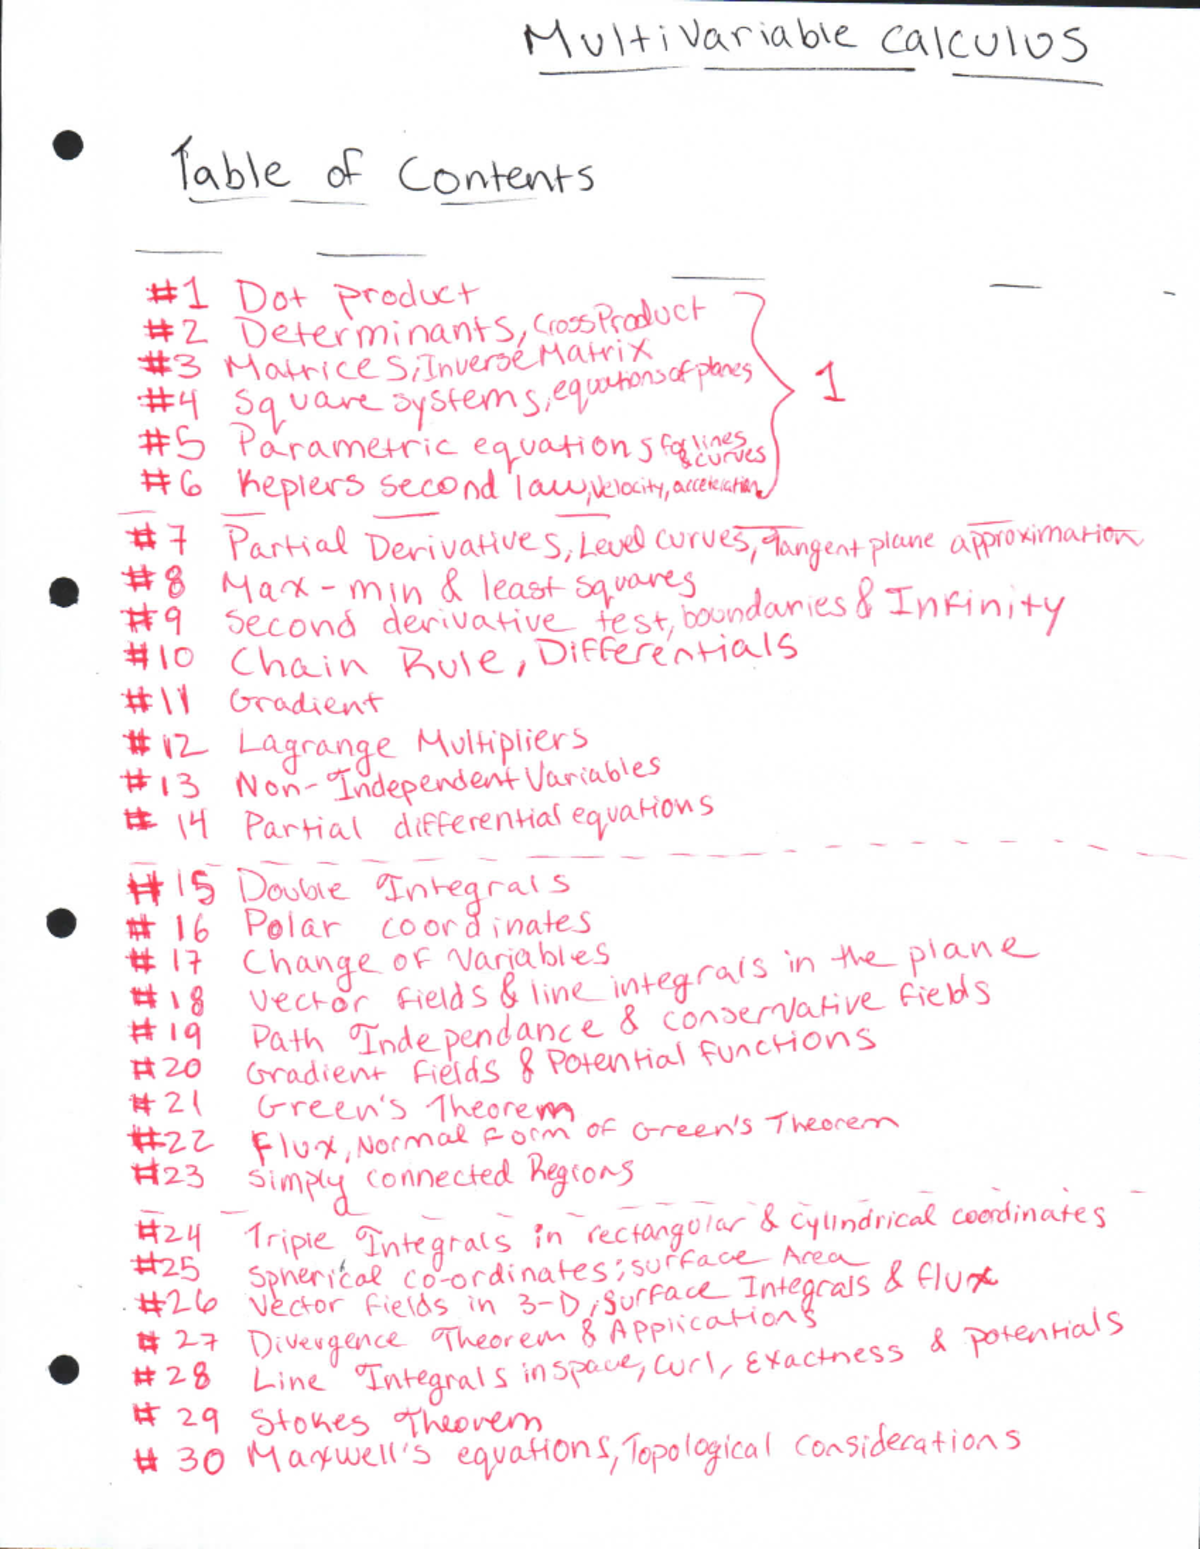 Multivariable calculus
Table of Contents
#1 Dot product
#2 Determinants, Cross Product
#3 Matrices; Inverse Matrix
#4 Square systems; equations of planes
#5 Parametric equations for lines & curves
#6 Keplers second law, velocity, acceleration
1
#7 Partial Derivatives, Level curves, Tangent plane approximation
#8 Max-min & least squares
#9 Second derivative test, boundaries & Infinity
#10 Chain Rule, Differentials
#11 Gradient
#12 Lagrange Multipliers
#13 Non-Independent Variables
#14 Partial differential equations
#15 Double Integrals
#16 Polar coordinates
#17 Change of Variables
#18 Vector fields & line integrals in the plane
#19 Path Independance & conservative fields
#20 Gradient fields & Potential functions
#21 Green's Theorem
#22 Flux, Normal Form of Green's Theorem
#23 Simply connected Regions
#24 Triple Integrals in rectangular & cylindrical coordinates
#25 Spherical co-ordinates; surface Area
#26 Vector fields in 3-D; surface Integrals & flux
#27 Divergence Theorem & Applications
#28 Line Integrals in space, curl, Exactness & potentials
#29 Stokes Theorem
#30 Maxwell's equations, Topological considerations